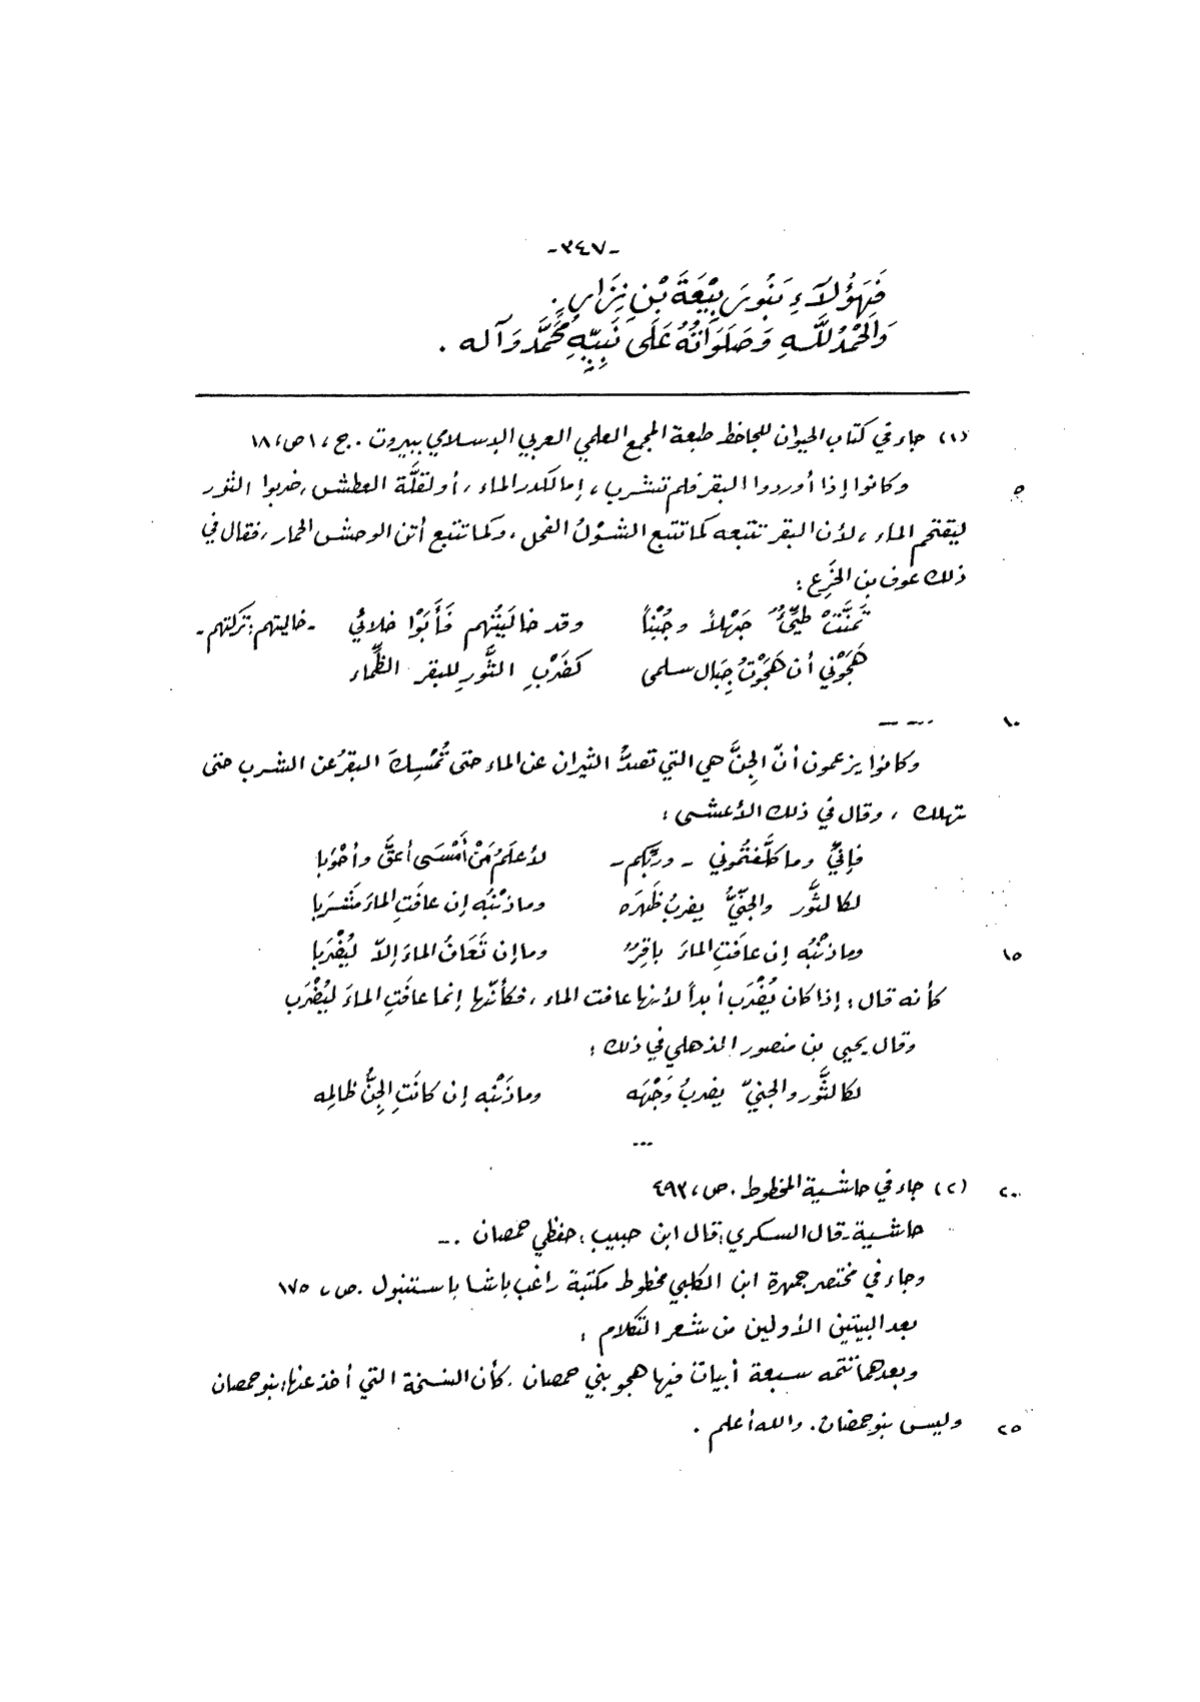 -٣٤٧-
فَهَؤُلَاءِ بَنُو رَبِيْعَةَ بْنِ نِزَارٍ.
وَالْحَمْدُ لِلَّهِ وَصَلَوَاتُهُ عَلَى نَبِيِّهِ مُحَمَّدٍ وَآله .
(١) جاء في كتاب الحيوان للجاحظ طبعة المجمع العلمي العربي الإسلامي ببيروت . ج ، ١ ص ، ١٨
وكانوا إذا أوردوا البقر فلم تشرب ، إما لكدر الماء ، أو لقلَّة العطش ، ضربوا الثور ٥
ليقتحم الماء ، لأن البقر تتبعه كما تتبع الشَوْلُ الفحل ، وكما تتبع أتن الوحش الحمار ، فقال في
ذلك عوف بن الخَرِع :
تَمَنَّتْ طيّئٌ جَهْلاً وجُبْناً وقد خالَيْتُهم فَأَبَوْا خلائي - خاليتهم : تركتهم -
هَجَوْني أن هَجَوْتُ جِبَال سلمى كَضَرْبِ الثَّورِ للبقر الظِّماء
--- ١٠
وكانوا يزعمون أنّ الجِنَّ هي التي تصدُّ الثيران عن الماء حتى تُمْسِكَ البقرُ عن الشرب حتى
تهلك ، وقال في ذلك الأعشى :
فإنّي وما كلَّفتُموني - وربّكم - لأعلَمُ مَنْ أَمْسَى أعقَّ وأحْوَبا
لكالثَّور والجنّيُّ يضربُ ظَهرَه وما ذَنْبُه إن عافَتِ الماءَ مَشْرَبا
وما ذَنْبُه إن عافَتِ الماءَ باقِرٌ وما إن تَعَافُ الماءَ إلاّ ليُضْرَبا ١٥
كأنه قال : إذا كان يُضْرَب أبداً لأنها عافت الماء ، فكأنّها إنما عافَتِ الماءَ ليُضْرَب
وقال يحيى بن منصور الذهلي في ذلك :
لكالثَّور والجنيّ يضربُ وَجْهَه وما ذَنْبُه إن كانَتِ الجِنُّ ظالِمه
...
(٢) جاء في حاشية المخطوط . ص ، ٤٩٣ ٢٠
حاشية - قال السكري : قال ابن حبيب : حفظي حمصان . -
وجاء في مختصر جمهرة ابن الكلبي مخطوط مكتبة راغب باشا باستنبول . ص ، ١٧٥
بعد البيتين الأولين من شعر التكلام :
وبعدهما تتمه سبعة أبيات فيها هجو بني حمصان . كأن النسخة التي أخذ عنها : بنو حمصان
وليس بنو حمضان . والله أعلم . ٢٥